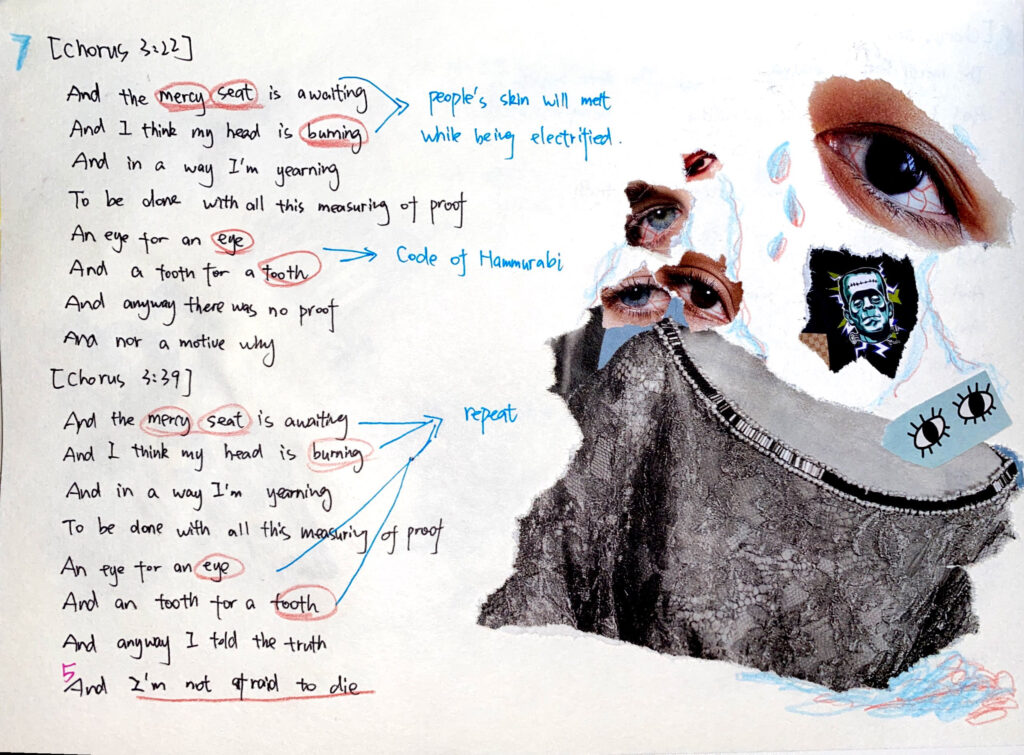 7 [Chorus 3:22]
And the mercy seat is awaiting
And I think my head is burning
And in a way I'm yearning
To be done with all this measuring of proof
An eye for an eye
And a tooth for a tooth
And anyway there was no proof
And nor a motive why
[Chorus 3:39]
And the mercy seat is awaiting
And I think my head is burning
And in a way I'm yearning
To be done with all this measuring of proof
An eye for an eye
And an tooth for a tooth
And anyway I told the truth
5 And I'm not afraid to die
people's skin will melt
while being electrified.
Code of Hammurabi
repeat